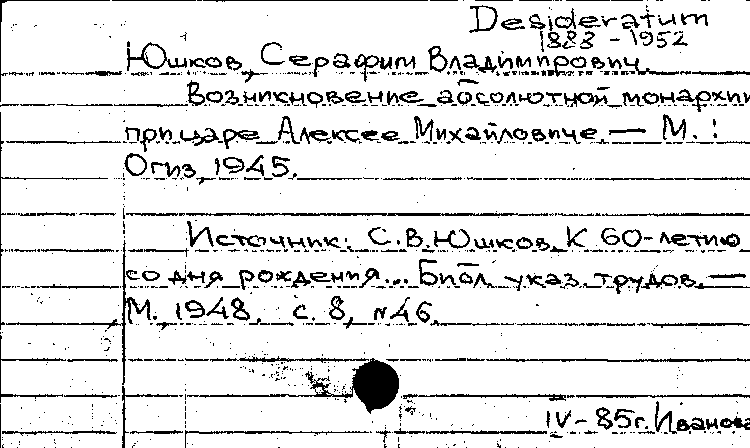 Desideratum
1883 - 1952
Юшков, Серафим Владимирович.
Возникновение абсолютной монархии
при царе Алексее Михайловиче. — М. :
Огиз, 1945.
Источник: С.В.Юшков. К 60-летию
со дня рождения... Библ. указ. трудов. —
М., 1948. с. 8, №46.
IV - 85г. Иванова